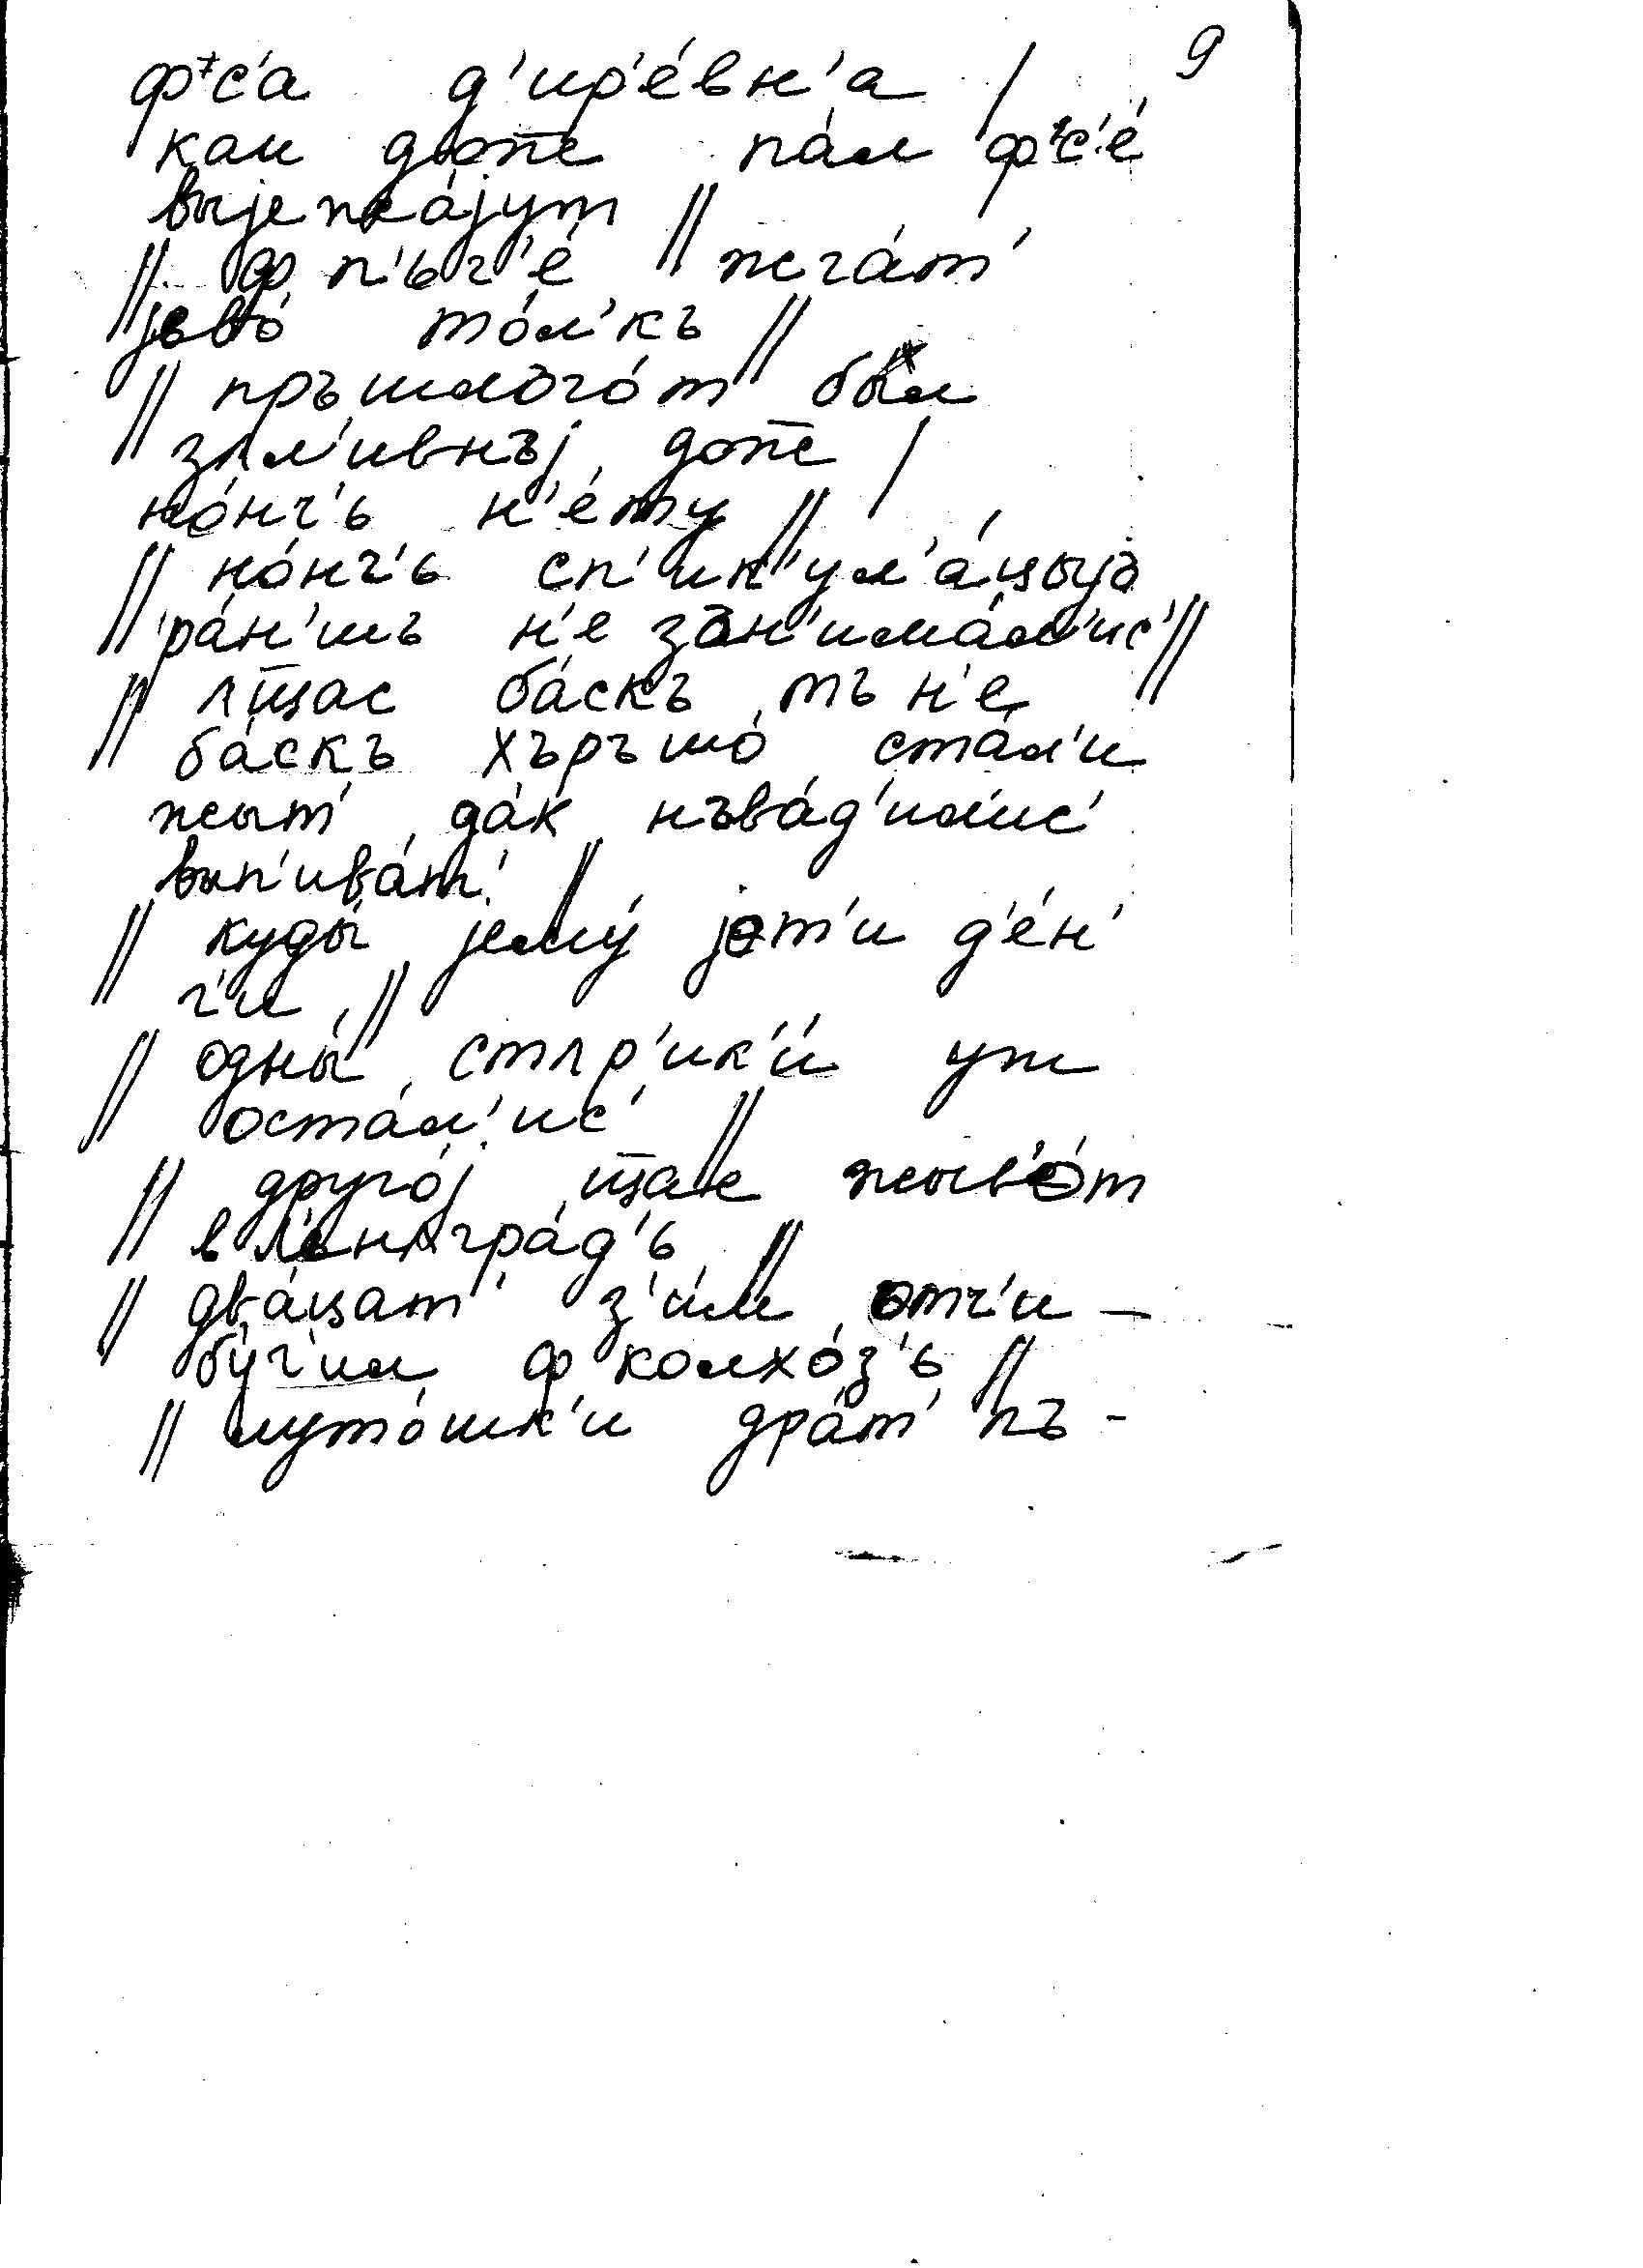 9
ф’с’а д’ир’е́вн’а /
как дож̅ пал ф’с’е́
выjежа́jут //
// ф п’ьч’е́ жгат’
jьво́ то́л’къ //
// пръшлого́т был
зʌл’ивнъj дож̅ /
но́нч’ь н’е́ту //
// но́нч’ь сп’ик’ул’а́цыjъ
ра́н’шъ н’е зън’има́л’ис’ //
// ʌщ̅ас ба́скъ тъ н’е
ба́скъ хъръшо́ ста́л’и
жыт’ да́к нъва́д’ил’ис’
вып’ива́т’ //
// куды́ jему́ jет’и д’е́н’
г’и //
// одны́ стʌр’ик’и́ уж
оста́л’ис’ //
// друго́j щ̅ас жыв’о́т
в л’ьнʌгра́д’ь //
// два́цат’ з’им отч’и –
бу́ч’ил ф колхо́з’ь //
// луто́шк’и дра́т’ пъ -